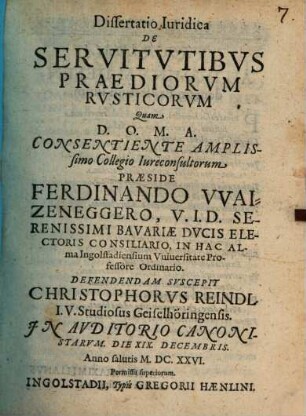 7
Dissertatio Iuridica
DE
SERVITVTIBVS
PRAEDIORVM
RVSTICORVM
Quam
D. O. M. A.
CONSENTIENTE AMPLIS-
simo Collegio Iureconsultorum
PRÆSIDE
FERDINANDO VVAI-
ZENEGGERO, V. I. D. SE-
RENISSIMI BAVARIÆ DVCIS ELE-
CTORIS CONSILIARIO, IN HAC AL-
ma Ingolstadiensium Vniuersitate Pro-
fessore Ordinario.
DEFENDENDAM SVSCEPIT
CHRISTOPHORVS REINDL
I. V. Studiosus Geiselhöringensis.
IN AVDITORIO CANONI-
STARVM. DIE XIX. DECEMBRIS.
Anno salutis M. DC. XXVI.
Permissu superiorum.
INGOLSTADII, Typis GREGORII HÆNLINI.